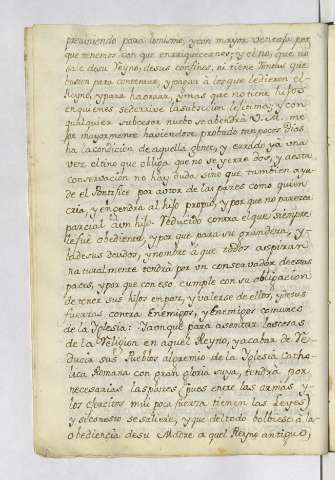 previniendo para lo mismo, y con mayor ventaja por
que tenemos con que enrriquecernos; y el no, que no
sale de su Reyno, de sus confines, ni tiene Rentas que
basten para contentar, y pagar à los que le dieron el
Reyno, y para honrar, y mas que no tiene hijos
en quienes se derive la subcesion lexitima, y con
qualquier subcesor nuebo se abendrà V. M. me
jor mayormente haviendose probado tan pocos dias
ha la condicion de aquella gente, y errado ya una
vez el tino que obliga que no se yerre dos, y a esta
conservacion no hay duda sino que tambien ayu
de el Pontifice por autor de las pazes como quien
cria, y engendra al hijo propio, y por que no parezca
parcial a un hijo reducido contra el que siempre
le fue obediente, y por que para su grandeza, y
la de sus deudos, y nombre à que todos aspiran
naturalmente tendrà por un conservador de estas
pazes, y por que con eso cumple con su obligacion
de tener sus hijos en paz, y valerse de ellos, y de sus
fuerzas contra Enemigos, y Enemigos comunes
de la Iglesia: Y aunque para asentar las cosas
de la Religion en aquel Reyno, y acabar de re-
ducir sus Pueblos al gremio de la Iglesia Catho-
lica Romana con gran gloria suya, tendrà por
necesarias las pazes (pues entre las armas y
los exercitos mui poca fuerza tienen las Leyes)
y si con eso se saliere, y que del todo bolbiese à la
obediencia de su Madre aquel Reyno antiguo,